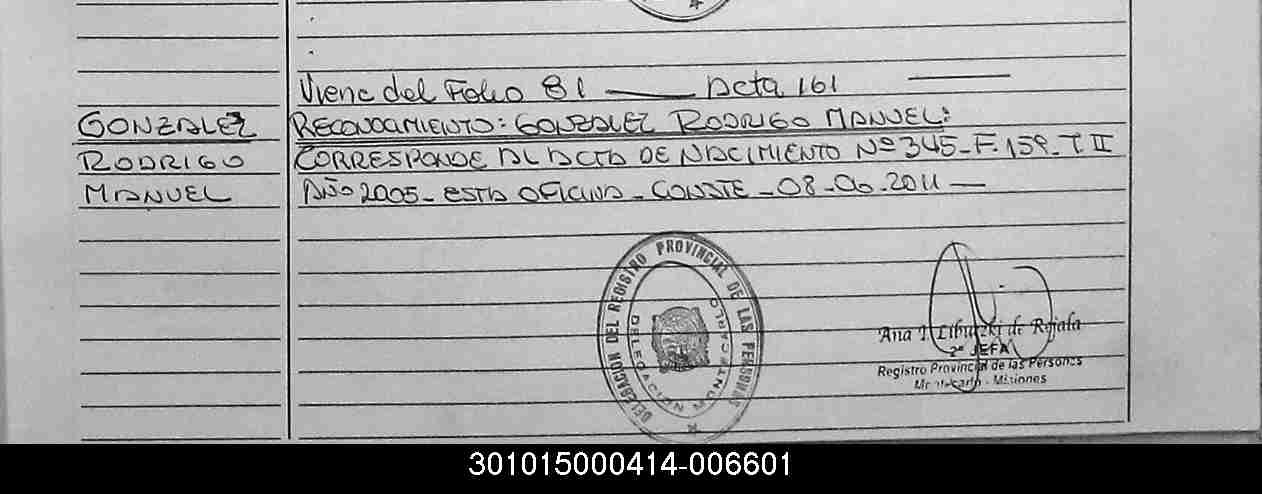 Viene del Folio 81 — Acta 161 —
GONZALEZ
RODRIGO
MANUEL
RECONOCIMIENTO: GONZALEZ RODRIGO MANUEL:
CORRESPONDE AL ACTA DE NACIMIENTO Nº 345_F.159_T II
AÑO 2005_ ESTA OFICINA_ CONSTE_08_06_2011 —
DELEGACIÓN DEL REGISTRO PROVINCIAL DE LAS PERSONAS
DELEGACIÓN MONTECARLO
Ana de Rojala
2ª JEFA
Registro Provincial de las Personas
Montecarlo - Misiones
301015000414-006601